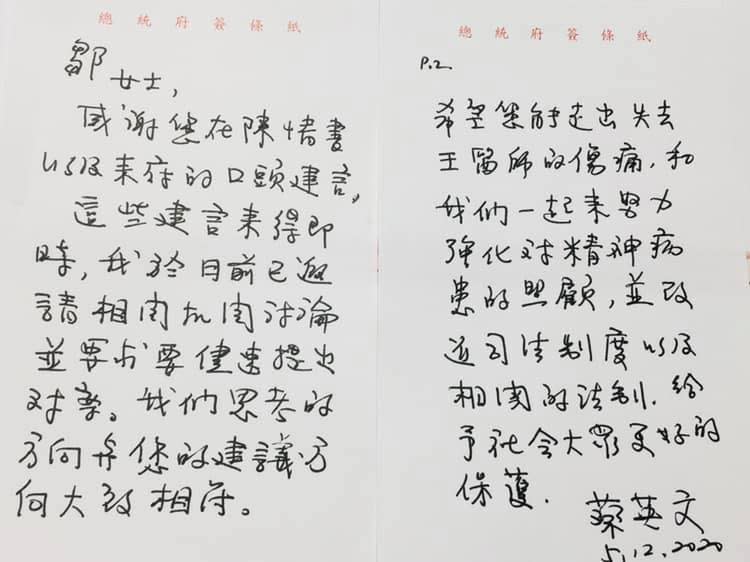 總統府簽條紙
鄒女士,
感謝您在陳情書
以及来府的口頭建言,
這些建言来得即
時,我於日前已邀
請相関机関討論
並要求要儘速提出
對案。我們思考的
方向与您的建議方
向大致相符。
總統府簽條紙
P.2
希望您能走出失去
王醫師的傷痛,和
我們一起来努力
強化对精神病
患的照顧,並改
進司法制度以及
相関的法制.給
予社会大眾更好的
保護.
蔡英文
5.12.2020